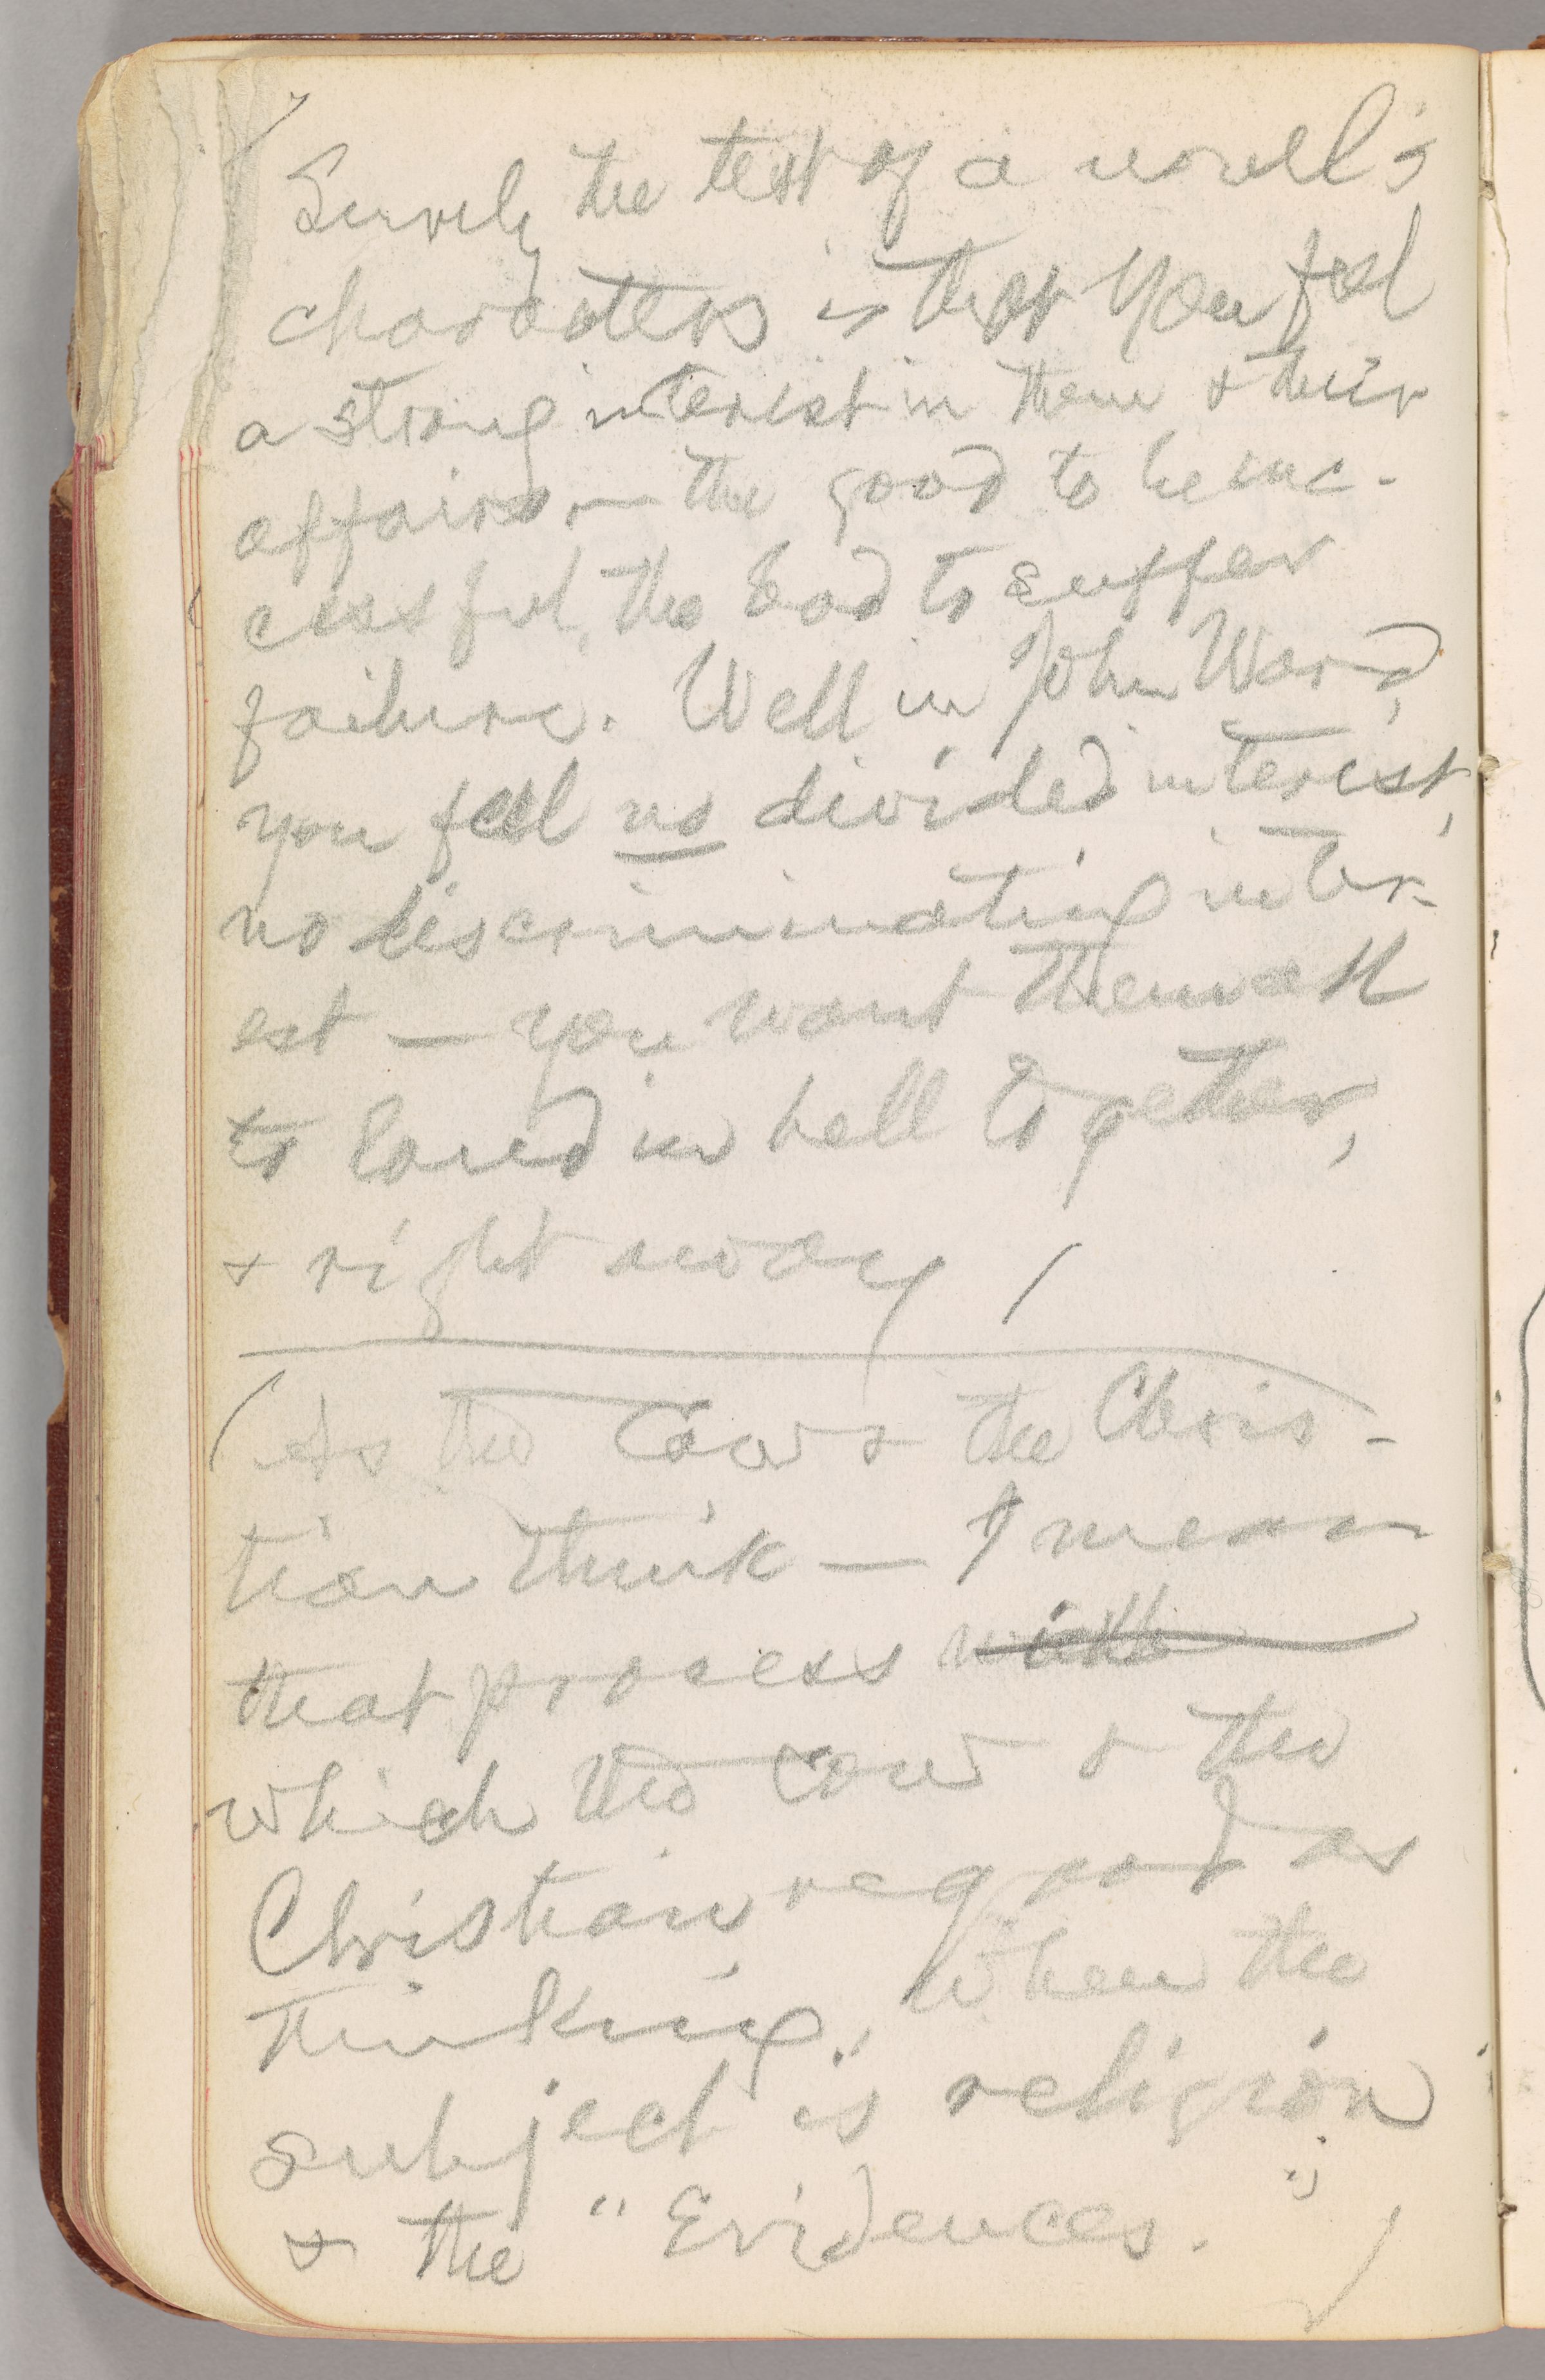 Surely the test of a novel's
characters is that you feel
a strong interest in them & their
affairs — the good to be suc-
cessful, the bad to suffer
failure. Well in John Ward,
you feel no divided interest,
no discriminating inter-
est — you want them all
to land in hell together,
& right away
As the cow & the Chris-
tian think — I mean
that process with
which the cow & the
Christian regard as
thinking, when the
subject is religion
& the "Evidences."